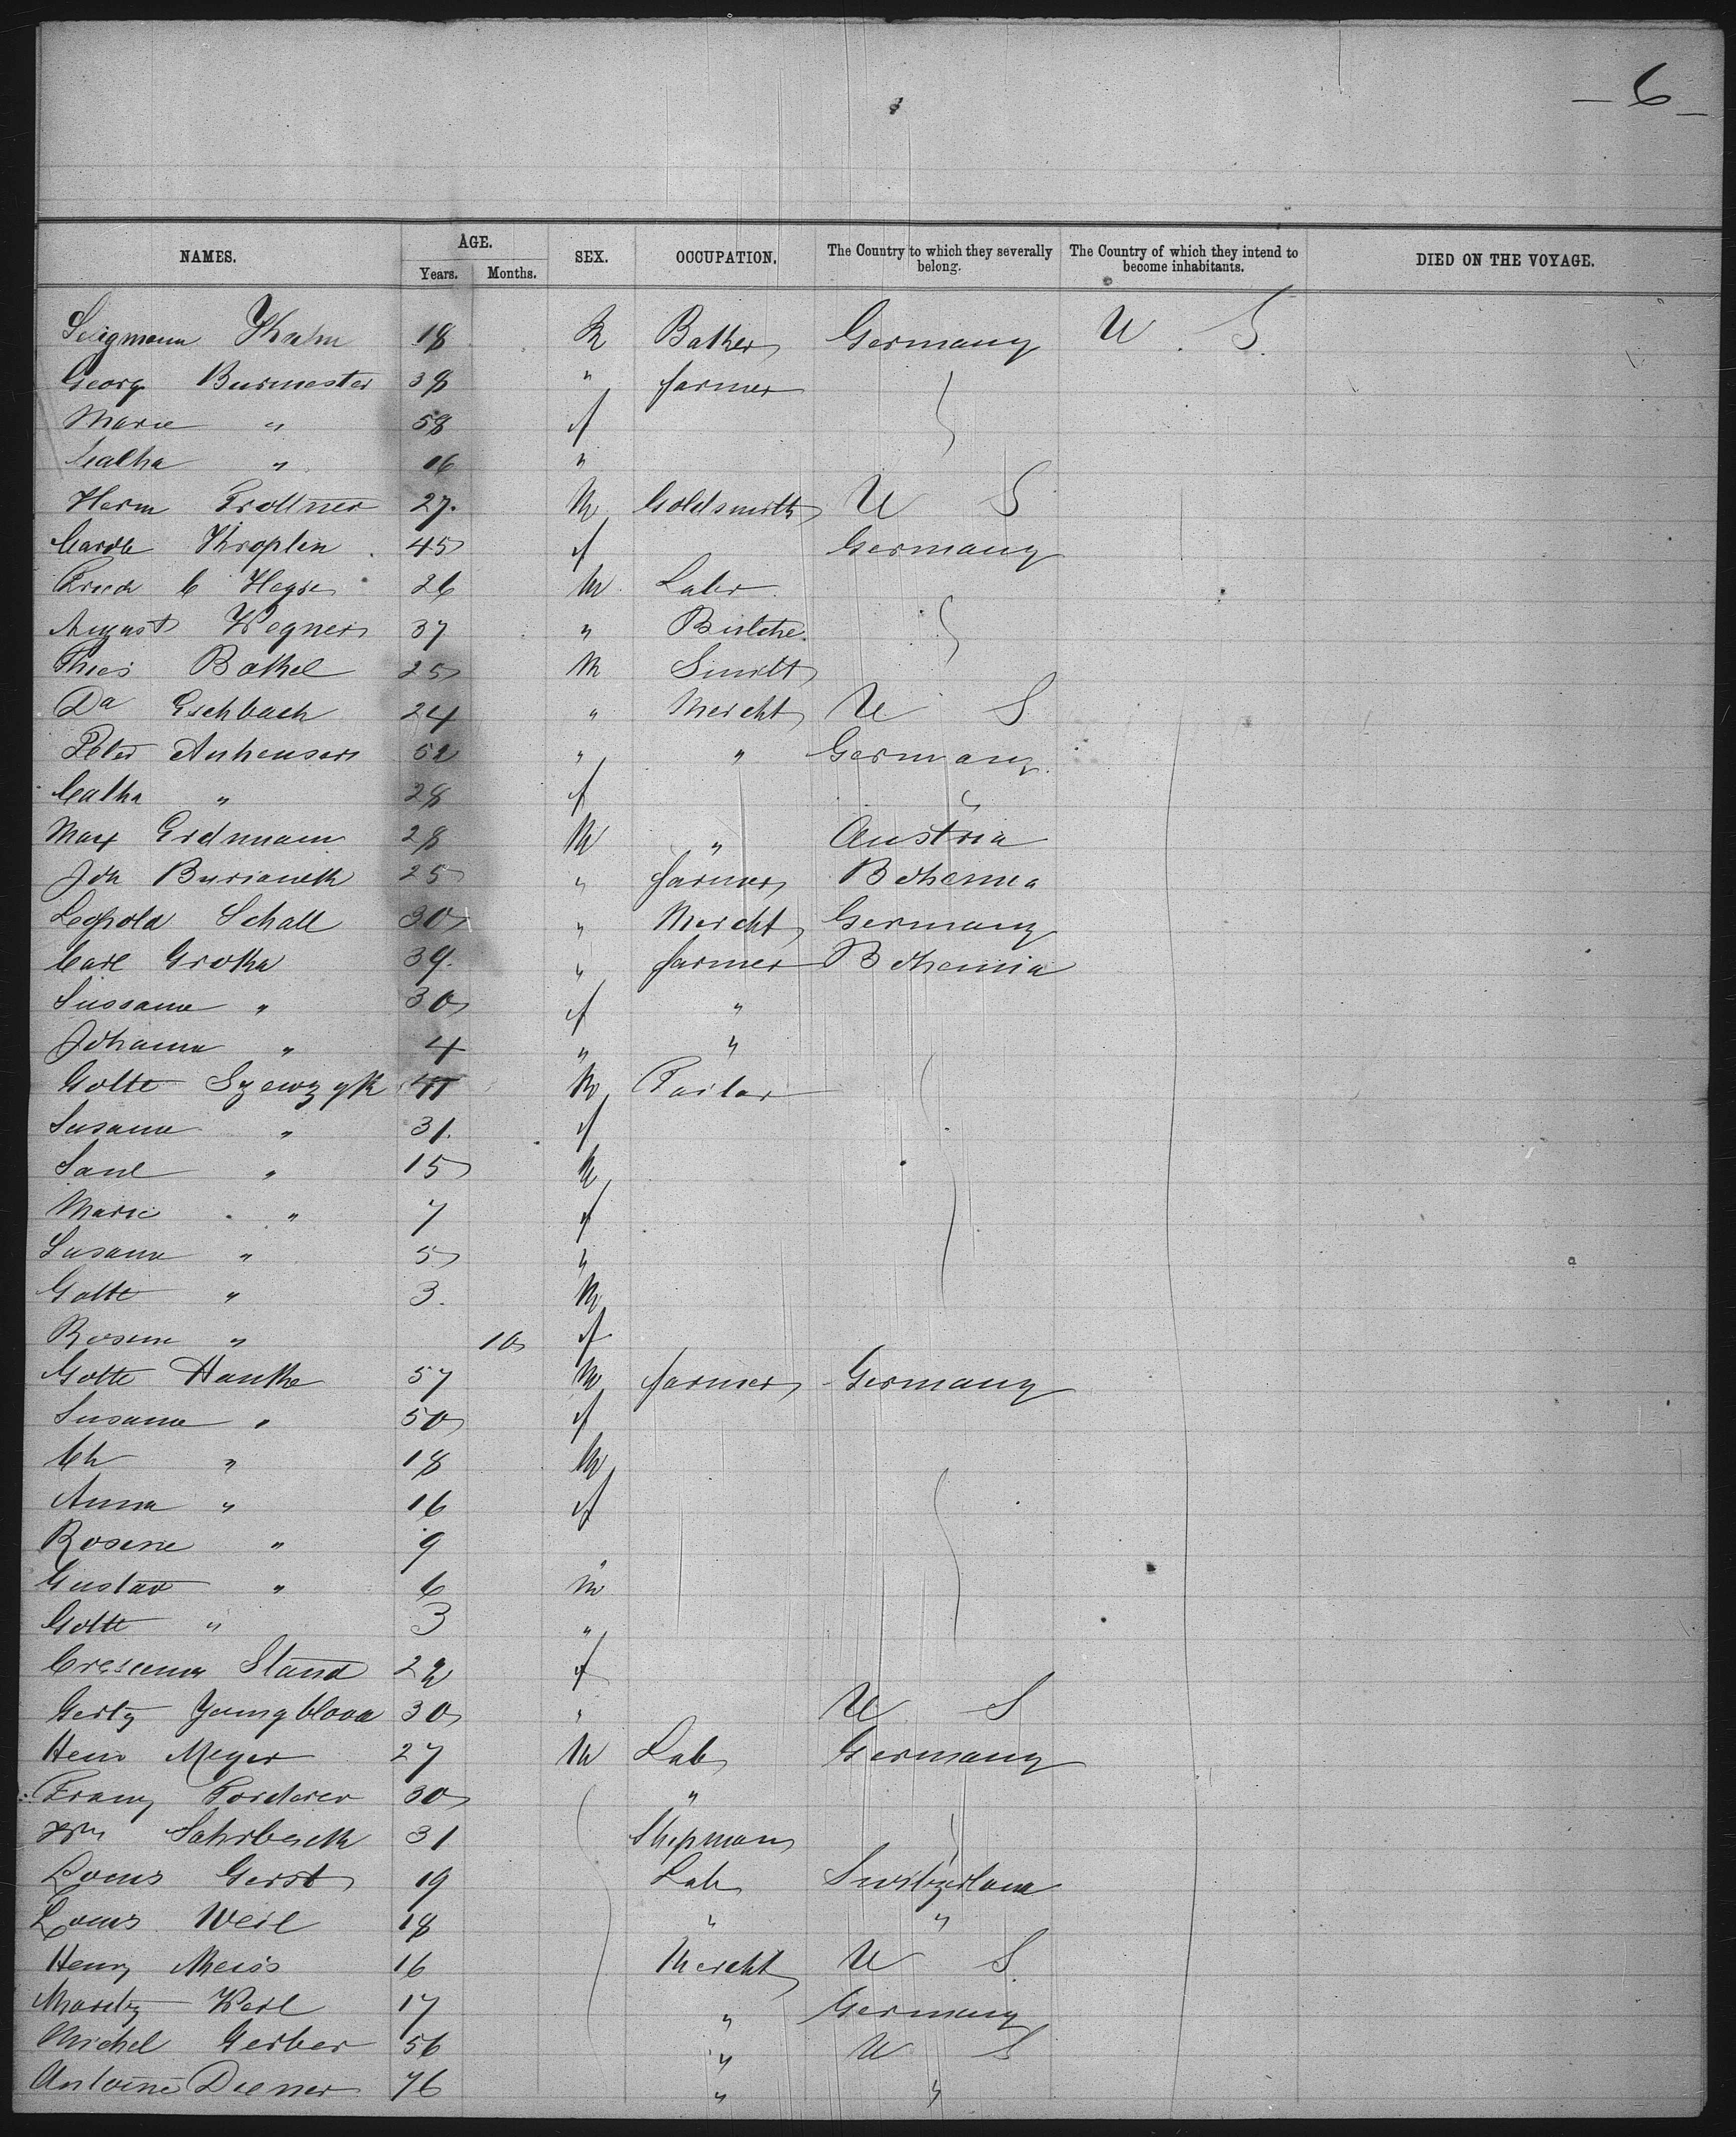 — 6 —
NAMES. AGE. SEX. OCCUPATION. The Country to which they severally belong. The Country of which they intend to become inhabitants. DIED ON THE VOYAGE.
Years. Months.
Kahn 18 Baker Germany U. S.
Georg Burmester 38 " farmer
Marie " 58 f
Catha " 16 "
Herm Trollmer 27. M Goldsmith U S
Kroplin 45 f Germany
C Heyse 26 M Labr
August Wegner 37 "
Thies Bothel 25 M Smith
Da Eschbach 24 " Mercht U S
Peter Anheuser 52 " " Germany
Catha " 28 f "
Max Erdmann 28 M " Austria
Joh Burianek 25 " farmer Bohemia
Leopold Schall 30 " Mercht Germany
Carl Grotha 39. " farmer Bohemia
Susanna " 30 f "
Johanna " 4 " "
Gotte Szewzyk 41 M Tailor
Susanna " 31. f
" 15 M
Marie " 7 f
Susanna " 5 "
Gotte " 3. M
Rosine " 10 f
Gotte Hanke 57 M farmer Germany
Susanna " 50 f
Ch " 18 M
Anna " 16 f
Rosine " 9 "
Gustav " 6 M
Gotte " 3 "
Stand 22 f
Youngblood 30 " U S
Henr Meyer 27 M Lab Germany
Franz Forderer 30 "
Wm 31 Shipman
Louis Gerst 19 Lab Switzerland
Louis Weil 18 " "
Henry Meiss 16 Mercht U S.
Moritz Weil 17 " Germany
Michel Gerber 56 " U S
Antoine Diener 76 " "